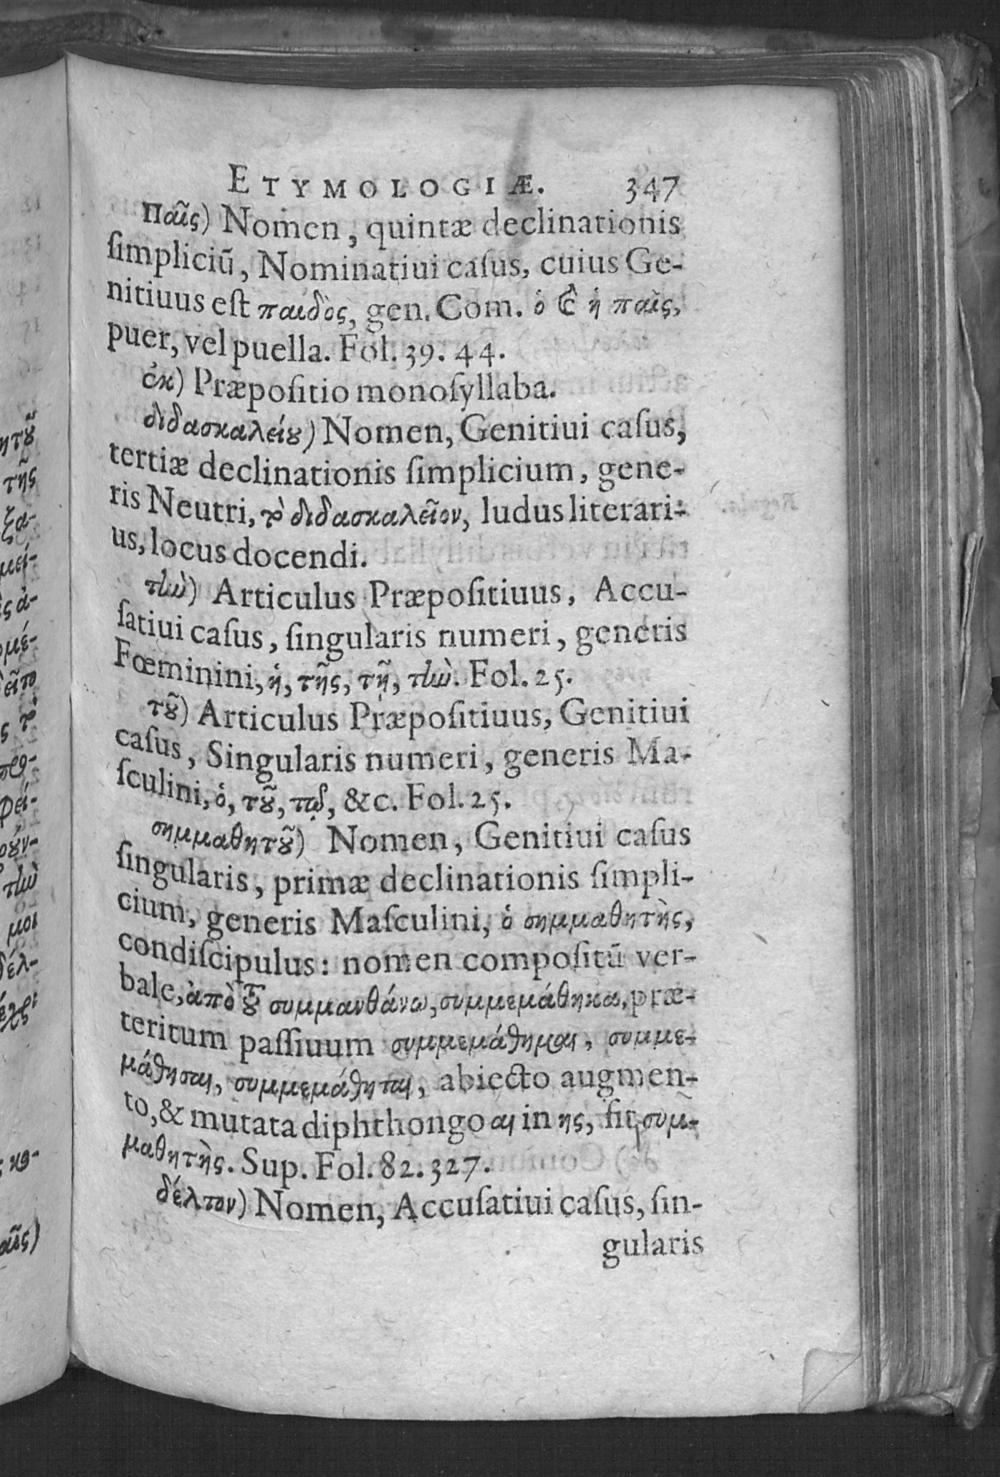 ETYMOLOGIÆ. 347
Παῖς) Nomen, quintæ declinationis
ſimpliciū, Nominatiui caſus, cuius Ge-
nitiuus eſt παιδὸς, gen. Com. ὁ & ἡ παῖς,
puer, vel puella. Fol. 39. 44.
ἐκ) Præpoſitio monoſyllaba.
διδασκαλείου) Nomen, Genitiui caſus,
tertiæ declinationis ſimplicium, gene-
ris Neutri, τὸ διδασκαλεῖον, ludus literari-
us, locus docendi.
τὴν) Articulus Præpoſitiuus, Accu-
ſatiui caſus, ſingularis numeri, generis
Fœminini, ἡ, τῆς, τῇ, τὴν. Fol. 25.
τοῦ) Articulus Præpoſitiuus, Genitiui
caſus, Singularis numeri, generis Ma-
ſculini, ὁ, τοῦ, τῷ, &c. Fol. 25.
σημμαθητοῦ) Nomen, Genitiui caſus
ſingularis, primæ declinationis ſimpli-
cium, generis Maſculini, ὁ σημμαθητὴς,
condiſcipulus: nomen compoſitū ver-
bale, ἀπὸ τοῦ συμμανθάνω, συμμεμάθηκα, præ-
teritum paſſiuum συμμεμάθημαι, συμμε-
μάθησαι, συμμεμάθηται, abiecto augmen-
to, & mutata diphthongo αι in ης, fit συμ-
μαθητὴς. Sup. Fol. 82. 327.
δέλτον) Nomen, Accuſatiui caſus, ſin-
gularis
ητοῦ
τῆς
ξα-
μεί-
ς ἀ-
ομέ-
εῖπο
ς τὸ
φεί-
τὴν
μοι
δέλ-
αῖς)